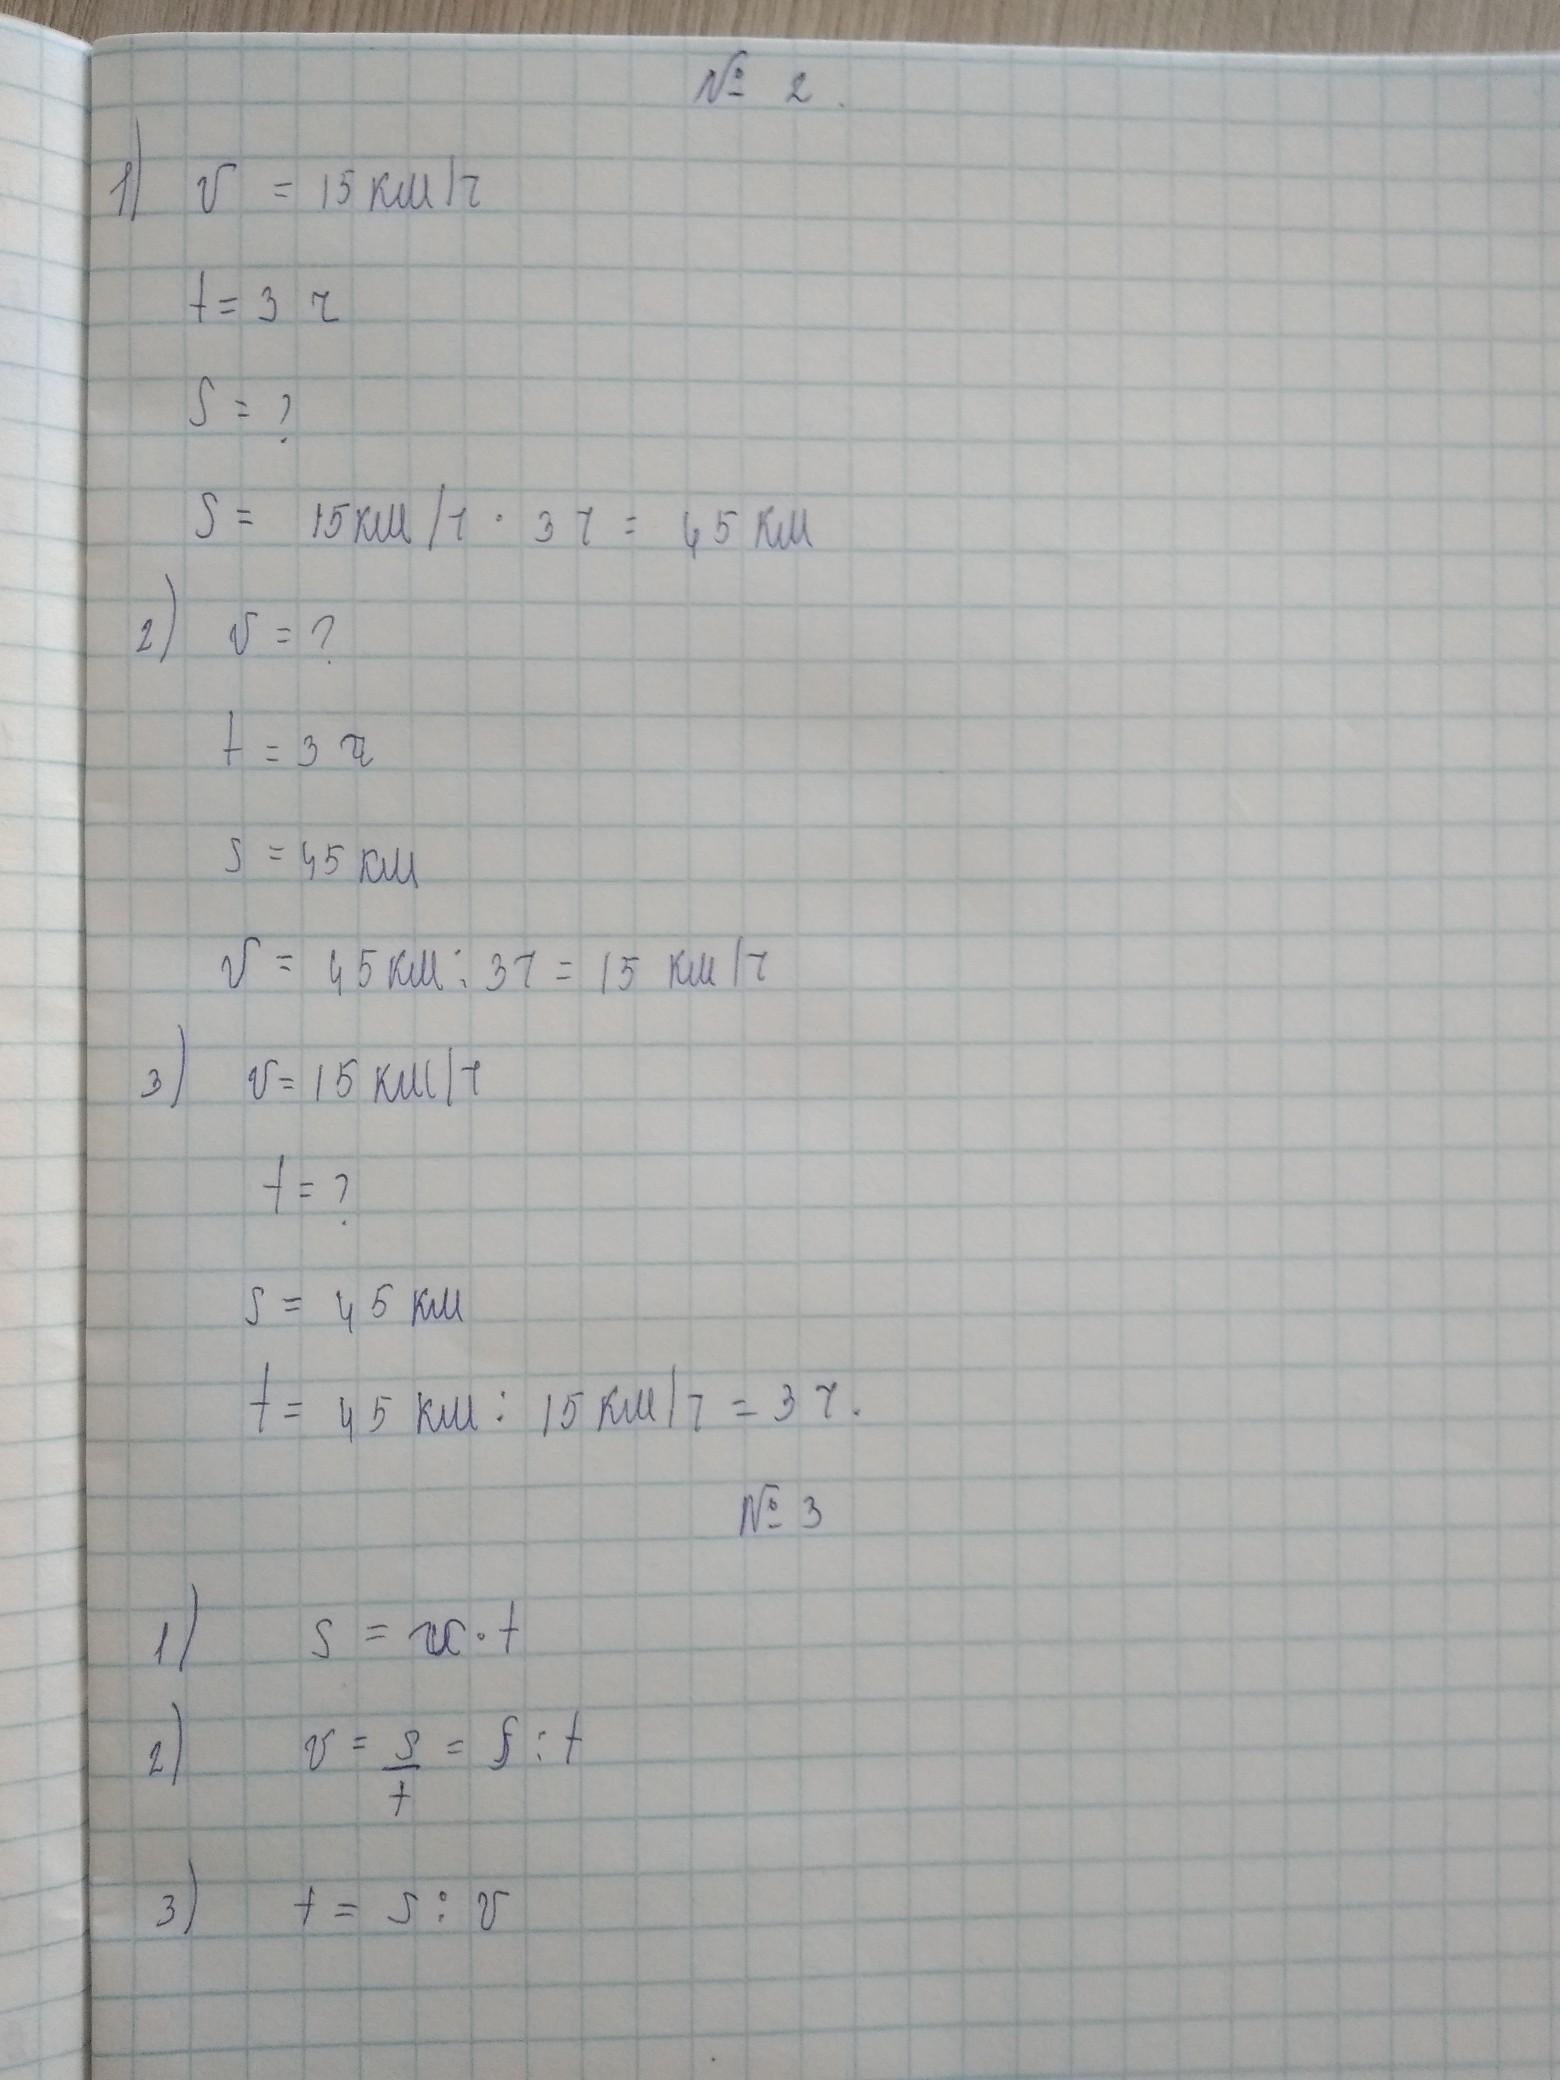 № 2.
1) v = 15 км/ч
t = 3 ч
S = ?
S = 15 км/ч · 3 ч = 45 км
2) v = ?
t = 3 ч
s = 45 км
v = 45 км : 3 ч = 15 км/ч
3) v = 15 км/ч
t = ?
s = 45 км
t = 45 км : 15 км/ч = 3 ч.
№ 3
1) s = v · t
2) v = s/t = s : t
3) t = s : v